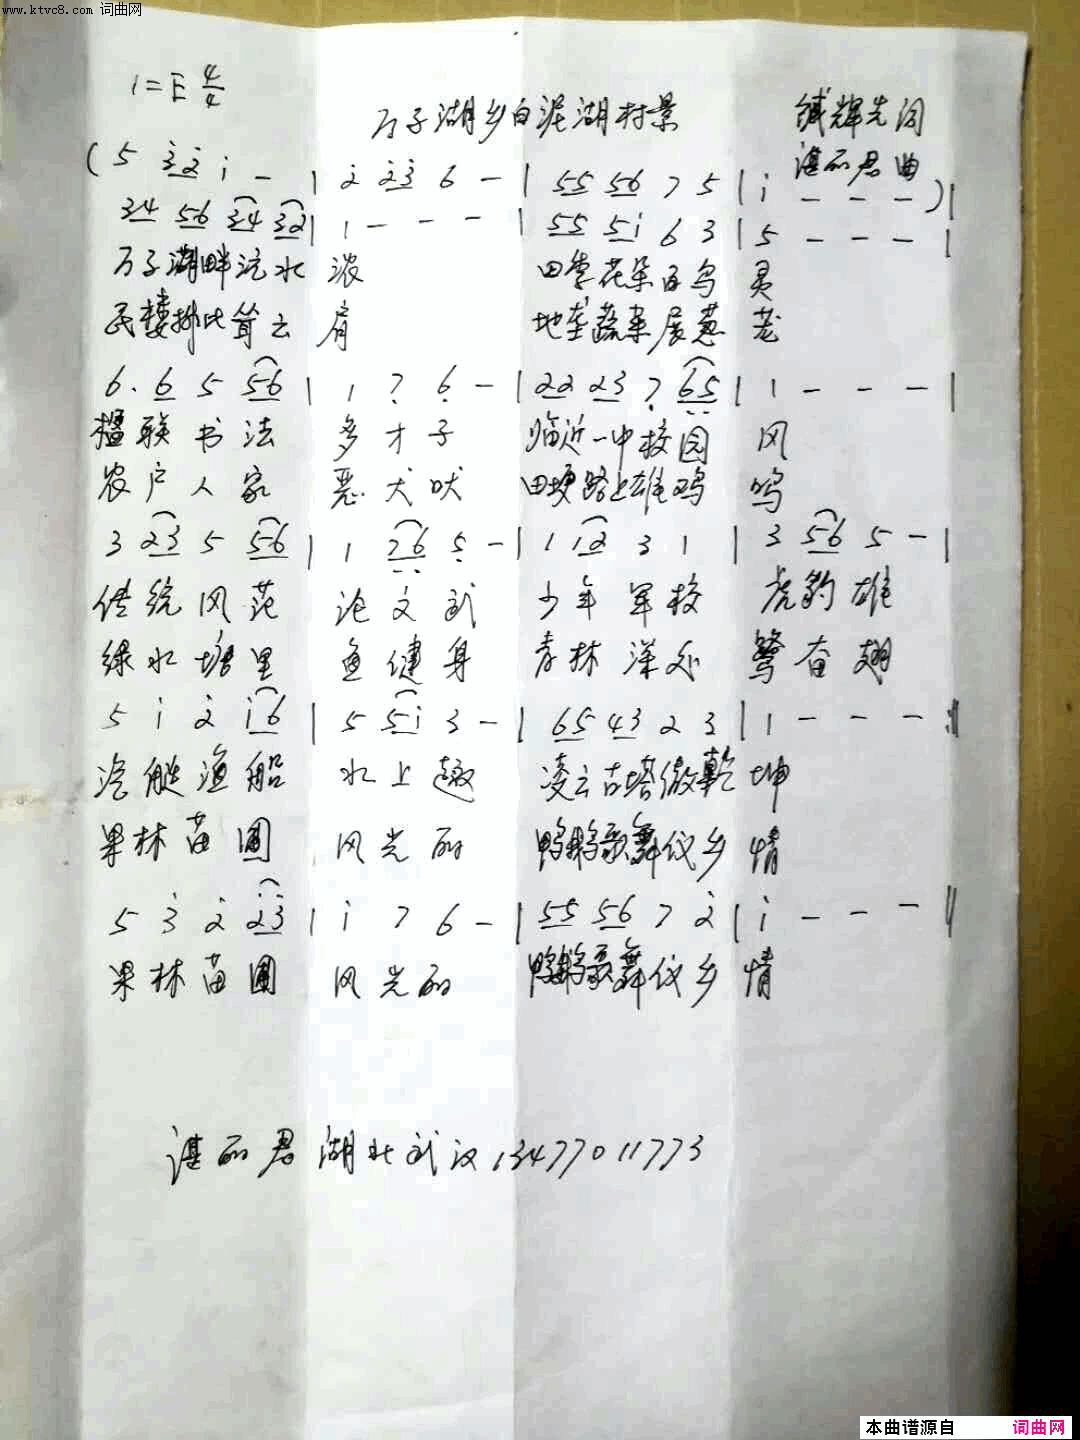 www.ktvc8.com 词曲网
1=E 4/4
万子湖乡白泥湖村景
辉先词
湛丽君曲
(5 3̇2̇ i - | 2̇ 2̇3̇ 6 - | 55 56 7 5 | i - - - )|
34 56 34 32 | 1 - - - | 55 5i 6 3 | 5 - - - |
万子湖畔汽水浓 田李花朵百鸟灵
民楼排比耸云肩 地垄蔬菜展葱茏
6. 6 5 56 | 1 7̣ 6̣ - | 22 23 7̣ 6̣5̣ | 1 - - - |
楹联书法 多才子 临近一中校园 风
农户人家 恶犬吠 田埂路上雄鸡 鸣
3 23 5 56 | 1 7̣6̣ 5̣ - | 1 12 3 1 | 3 56 5 - |
传统风范 论文武 少年军校 虎豹雄
绿水塘里 鱼健身 青林深处 莺奋翅
5 i 2̇ i6 | 5 5i 3 - | 65 43 2 3 | 1 - - - :||
汽艇渔船 水上趣 凌云古塔傲乾坤
果林苗圃 风光丽 鸭鹅歌舞仪乡 情
5 3̇ 2̇ 2̇3̇ | i 7 6 - | 55 56 7 2̇ | i - - - ||
果林苗圃 风光丽 鸭鹅歌舞仪乡 情
湛丽君 湖北武汉13477011773
本曲谱源自 词曲网